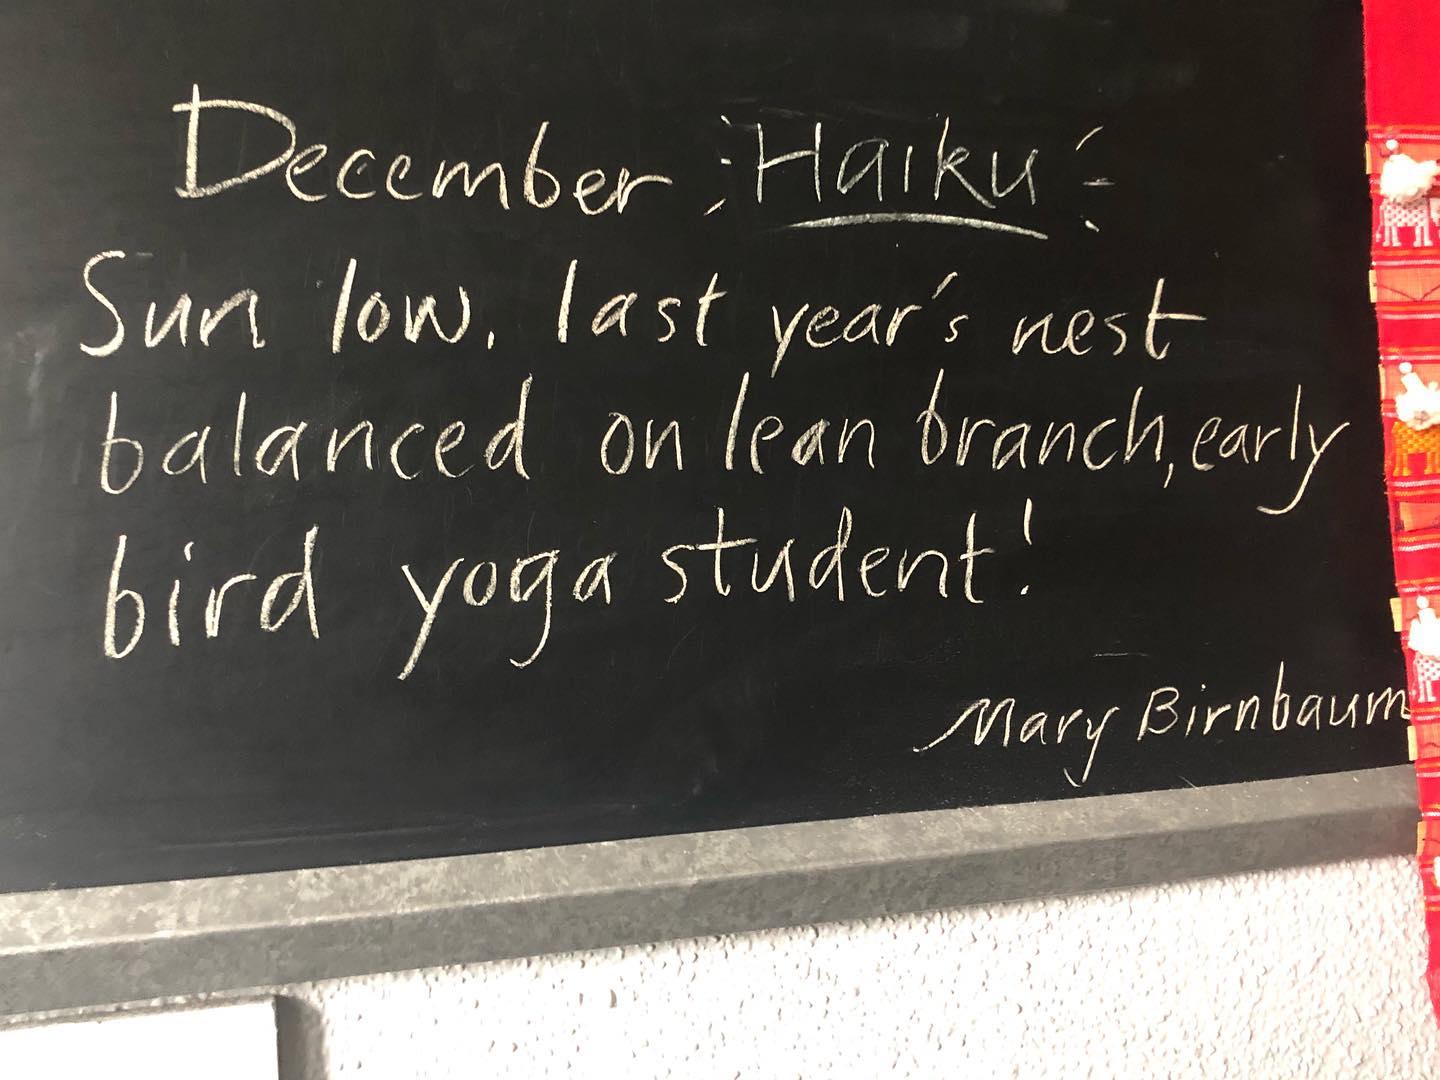 December Haiku
Sun low, last year's nest
balanced on lean branch, early
bird yoga student!
Mary Birnbaum